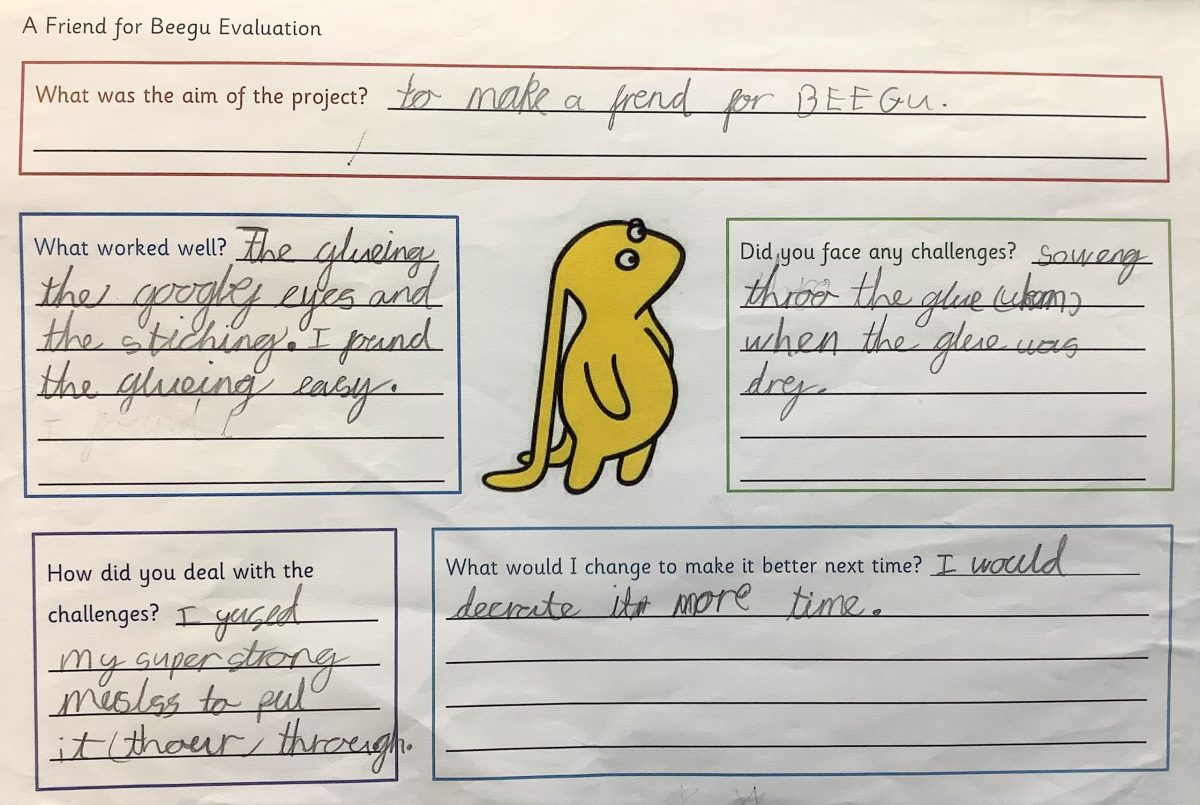 A Friend for Beegu Evaluation
What was the aim of the project? to make a frend for BEEGU.
What worked well? The glueing
the googley eyes and
the stiching. I found
the glueing easy.
I found I
Did you face any challenges? soweng
throo the glue (when)
when the glue was
drey.
How did you deal with the
challenges? I yused
my super strong
muslss to pul
it (thour) through.
What would I change to make it better next time? I would
decrate it more time.